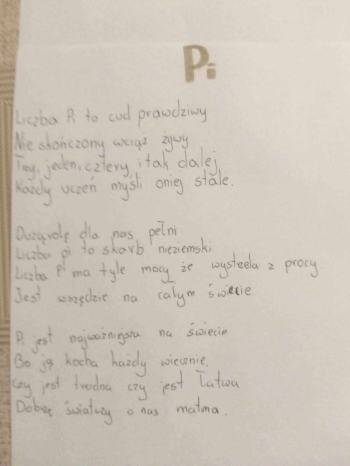 Pi
Liczba Pi to cud prawdziwy
Nie skończony wciąż żywy
Trzy, jeden, cztery, i tak dalej
Każdy uczeń myśli oniej stale.
Dużąrolę dla nas pełni
Liczba pi to skarb nieziemski
Liczba Pi ma tyle mocy że wystrzela z procy
Jest wszędzie na całym świecie
Pi jest najważniejsza na świecie
Bo ją kocha każdy wiecznie,
Czy jest trudna czy jest łatwa
Dobrze świadczy o nas matma.